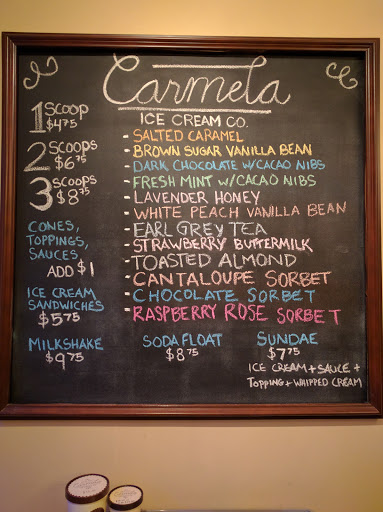 Carmela
ICE CREAM CO.
1 SCOOP
$4.75
2 SCOOPS
$6.75
3 SCOOPS
$8.75
CONES,
TOPPINGS,
SAUCES
ADD $1
ICE CREAM
SANDWICHES
$5.75
- SALTED CARAMEL
- BROWN SUGAR VANILLA BEAN
- DARK CHOCOLATE W/CACAO NIBS
- FRESH MINT W/CACAO NIBS
- LAVENDER HONEY
- WHITE PEACH VANILLA BEAN
- EARL GREY TEA
- STRAWBERRY BUTTERMILK
- TOASTED ALMOND
- CANTALOUPE SORBET
- CHOCOLATE SORBET
- RASPBERRY ROSE SORBET
MILKSHAKE
$9.75
SODA FLOAT
$8.75
SUNDAE
$7.75
ICE CREAM + SAUCE +
TOPPING + WHIPPED CREAM